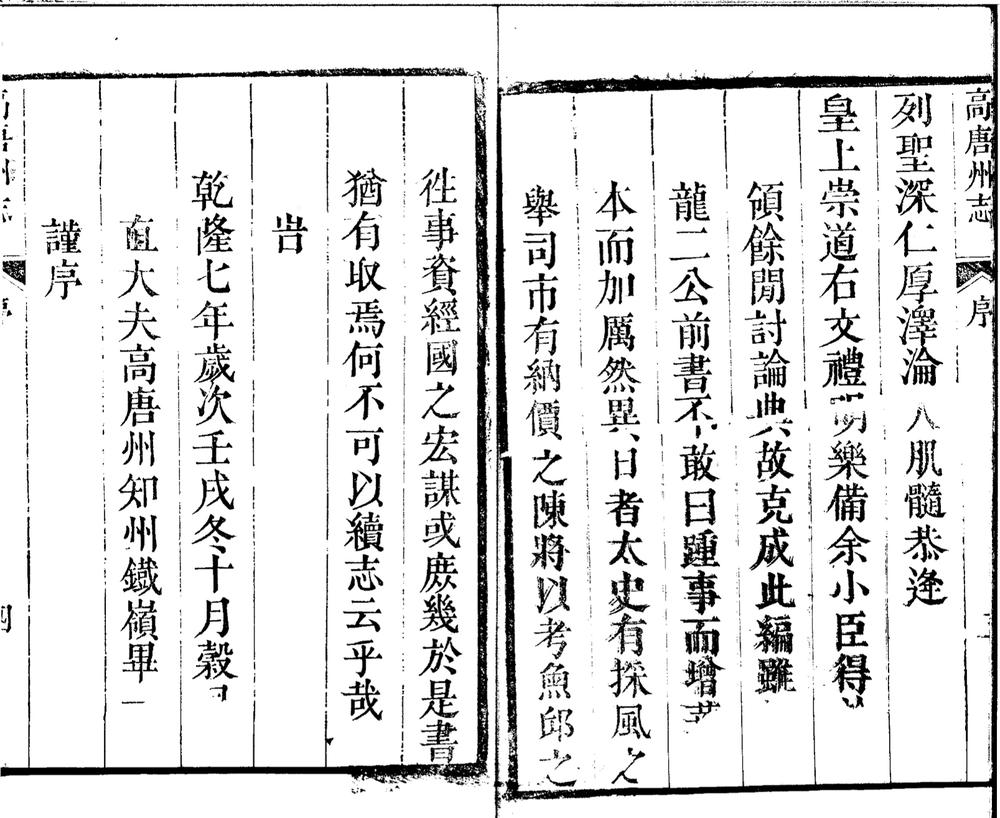 高唐州志
序
列聖深仁厚澤淪入肌髓恭逢
皇上崇道右文禮明樂備余小臣得
領餘閒討論典故克成此編雖
龍二公前書不敢曰踵事而增
本而加厲然異日者太史有採風之
舉司市有納價之陳將以考魚邱之
徃事資經國之宏謀或庶幾於是書
猶有取焉何不可以續志云乎哉
旹
乾隆七年歲次壬戌冬十月穀
直大夫高唐州知州鐵嶺畢一
謹序
高唐州志
序
四